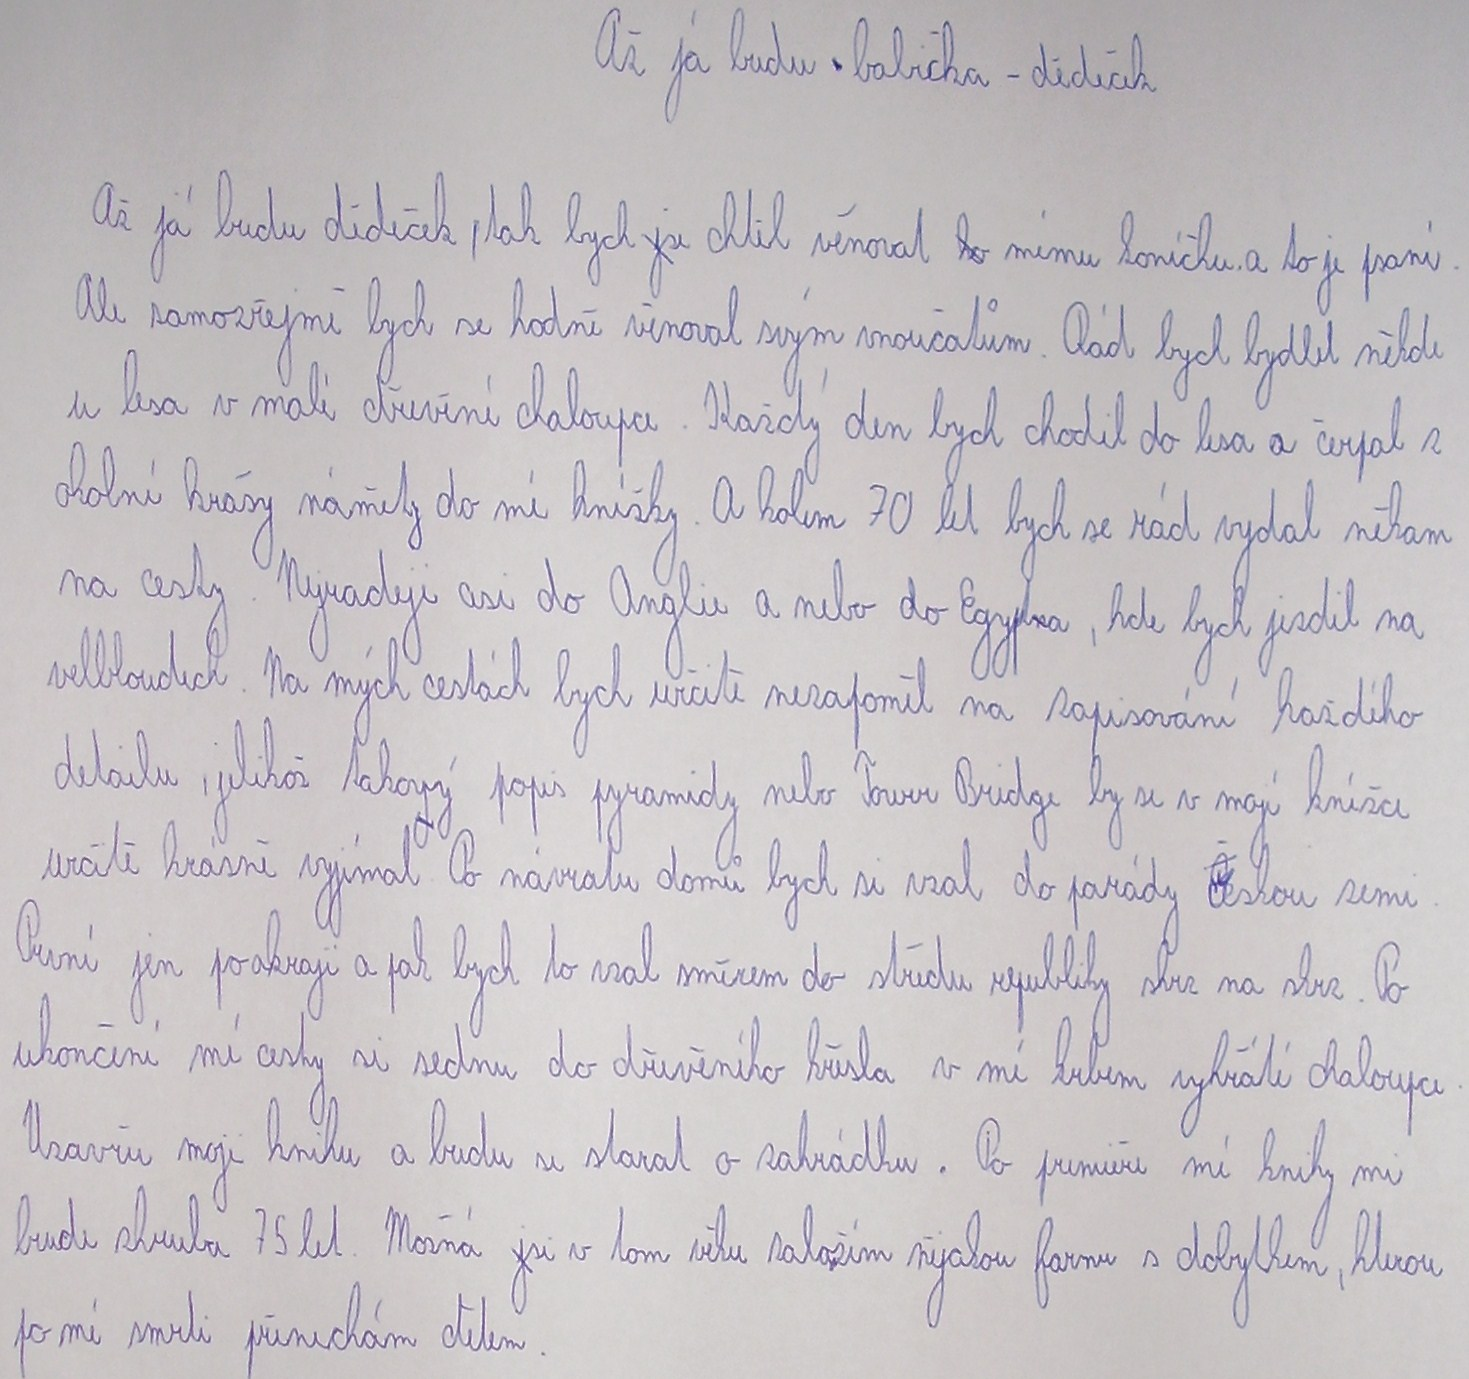 Až já budu babička - dědeček
Až já budu dědeček, tak bych se chtěl věnovat mému koníčku a to je psaní.
Ale samozřejmě bych se hodně věnoval svým vnoučatům. Rád bych bydlel někde
u lesa v malé dřevěné chaloupce. Každý den bych chodil do lesa a čerpal z
okolní krásy náměty do mé knížky. A kolem 70 let bych se rád vydal někam
na cesty. Nejraději asi do Anglie a nebo do Egypta, kde bych jezdil na
velbloudech. Na mých cestách bych určitě nezapoměl na zapisování každého
detailu, jelikož takový popis pyramidy nebo Tower Bridge by se v mojí knížce
určitě krásně vyjímal. Po návratu domů bych si vzal do parády Českou zemi.
První jen po okraji a pak bych to vzal směrem do středu republiky skrz na skrz. Po
ukončení mé cesty si sednu do dřevěného křesla v mé krbem vyhřáté chaloupce.
Uzavřu moji knihu a budu se starat o zahrádku. Po premiéře mé knihy mi
bude zhruba 75 let. Možná si v tom věku založím nějakou farmu s dobytkem, kterou
po mé smrti přenechám dětem.